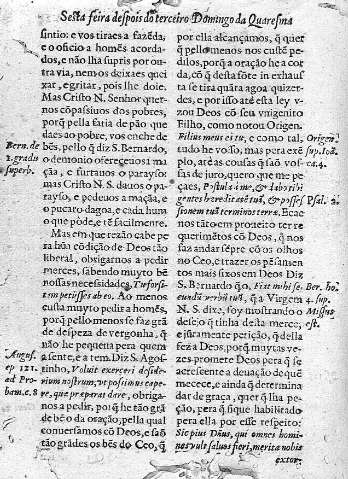 Sesta feira despois do terceiro Domingo da Quaresma
sintio: e vos tiraes a fazēda,
e o officio a homēs acorda-
dos, e não lha supris por ou-
tra via, nem os deixaes quei-
xar, e gritar, pois lhe doe.
Mas Cristo N. Senhor quer-
nos cōpassiuos dos pobres,
porq̃ pella fatia de pão que
daes ao pobre, vos enche de
bēs, pello q̃ diz S. Bernardo,
o demonio offereçeuos hũa
maçã, e furtauos o parayso:
mas Cristo N.S. dauos o pa-
rayso, e pedeuos a maçã, e
o pucaro dagoa, e cada hum
o que pòde, e tè facilmente.
Mas em que razão cabe pe
la hũa cōdição de Deos tão
liberal, obrigarnos a pedir
merces, sabendo muyto bē
nossas necessidades
tempetisses ab eo. Ao menos
custa muyto pedir a homēs,
porq̃ pello menos se faz grã
de despeza de vergonha, q̃
não he pequena pera quem
a sente, e a tem. Diz S. Agos-
tinho, Voluit exerceri deside-
rium nostrum, ut possimus cape-
re, que præperas dare, obriga-
nos a pedir, porq̃ he tão grã
de bē o da oração, pella qual
conuersamos cō Deos, e saõ
tão grãdes os bēs do Ceo, q̃
Bern. de
2. gradu
superb.
Augus.
ep 121.
ad Pro-
bam. c. 8
por ella alcançamos, q̃ quer
q̃ pello menos nos custē pe-
dilos, porq̃ a oração he a cor
da, cō q̃ desta fōte inexhaus
ta se tira quãta agoa quizer-
des, e por isso atè esta ley v-
zou Deos cō seu vnigenito
Filho, como notou Origen.
Filius meus es tu, e como tal,
tudo he vosso, mas pera exē
plo, atè as cousas q̃ saõ vos-
sas de juro, quero que me pe-
çaes, Postula à me, & dabo tibi
gentes hæreditatē tuā, & posses
sionem tuā terminos terræ. E ca e
nos tãto em proueito ter re
querimētos cō Deos, q̃ nos
faz andar sēpre cō os olhos
no Ceo, e trazer os pēsamen-
tos mais fixos em Deos. Diz
S. Bernardo q̃o, Fiat mihi se-
cundū verbū tuū, q̃ a Virgem
N. S. dixe, foy mostrando o
desejo q̃ tinha desta merce;
e juramente petição, q̃ della
fez a Deos, porq̃ muytas ve-
zes promete Deos pera q̃ se
acrescente a deuação de quē
mereçe, e ainda q̃ determina
dar de graça, quer q̃ lha pe-
ção, pera q̃ fique habilitado
pera ella por esse respeito:
Sic pius Dñus, qui omnes homi-
nes vult saluos fieri, merita nobis
extor-
Origen.
sup. loc.
ca. 4.
Psal. 2.
Ber. ho.
4. sup.
Missus
est.